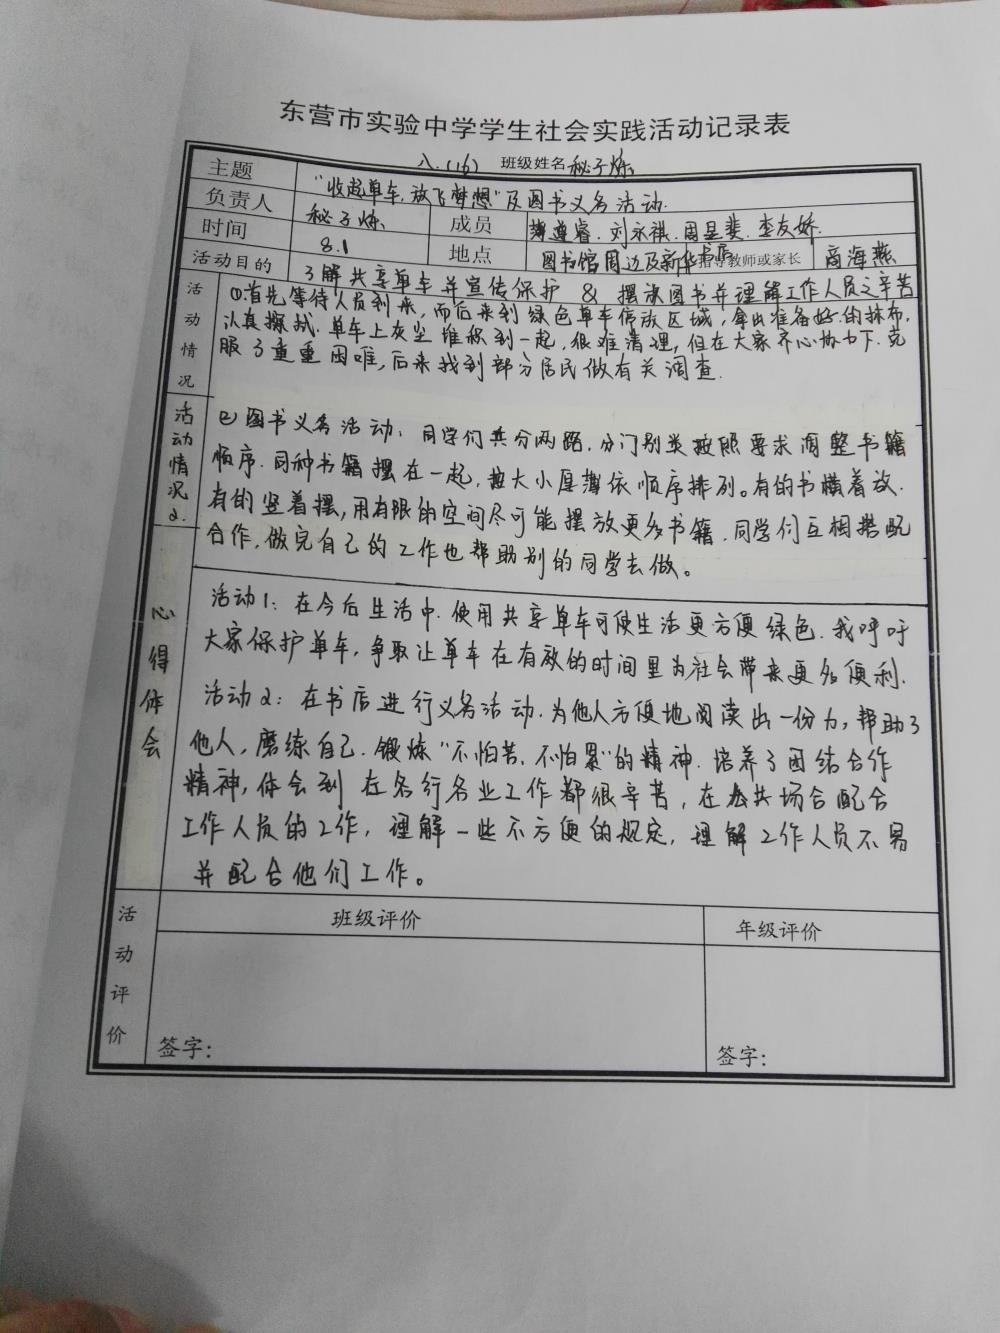 东营市实验中学学生社会实践活动记录表
八.(16) 班级姓名 秘子烁
主题 "收起单车,放飞梦想"及图书义务活动.
负责人 秘子烁. 成员 薄遵睿.刘永祺.周昱斐.李友娇.
时间 8.1 地点 图书馆周边及新华书店 指导教师或家长 商海燕
活动目的 了解共享单车并宣传保护 & 摆放图书并理解工作人员之辛苦
活动情况
①.首先等待人员到来,而后来到绿色单车停放区域,拿出准备好的抹布,
认真擦拭.单车上灰尘堆积到一起,很难清理,但在大家齐心协力下.克
服了重重困难,后来找到部分居民做有关调查.
活动情况2.
②图书义务活动:同学们共分两路,分门别类按照要求调整书籍
顺序.同种书籍摆在一起,按大小厚薄依顺序排列。有的书横着放.
有的竖着摆,用有限的空间尽可能摆放更多书籍.同学们互相搭配
合作,做完自己的工作也帮助别的同学去做。
心得体会
活动1:在今后生活中.使用共享单车可使生活更方便绿色.我呼吁
大家保护单车,争取让单车在有效的时间里为社会带来更多便利.
活动2:在书店进行义务活动.为他人方便地阅读出一份力,帮助了
他人,磨练自己.锻炼"不怕苦.不怕累"的精神.培养了团结合作
精神,体会到在各行各业工作都很辛苦,在公共场合配合
工作人员的工作,理解一些不方便的规定,理解工作人员不易
并配合他们工作。
活动评价 班级评价 年级评价
签字: 签字: